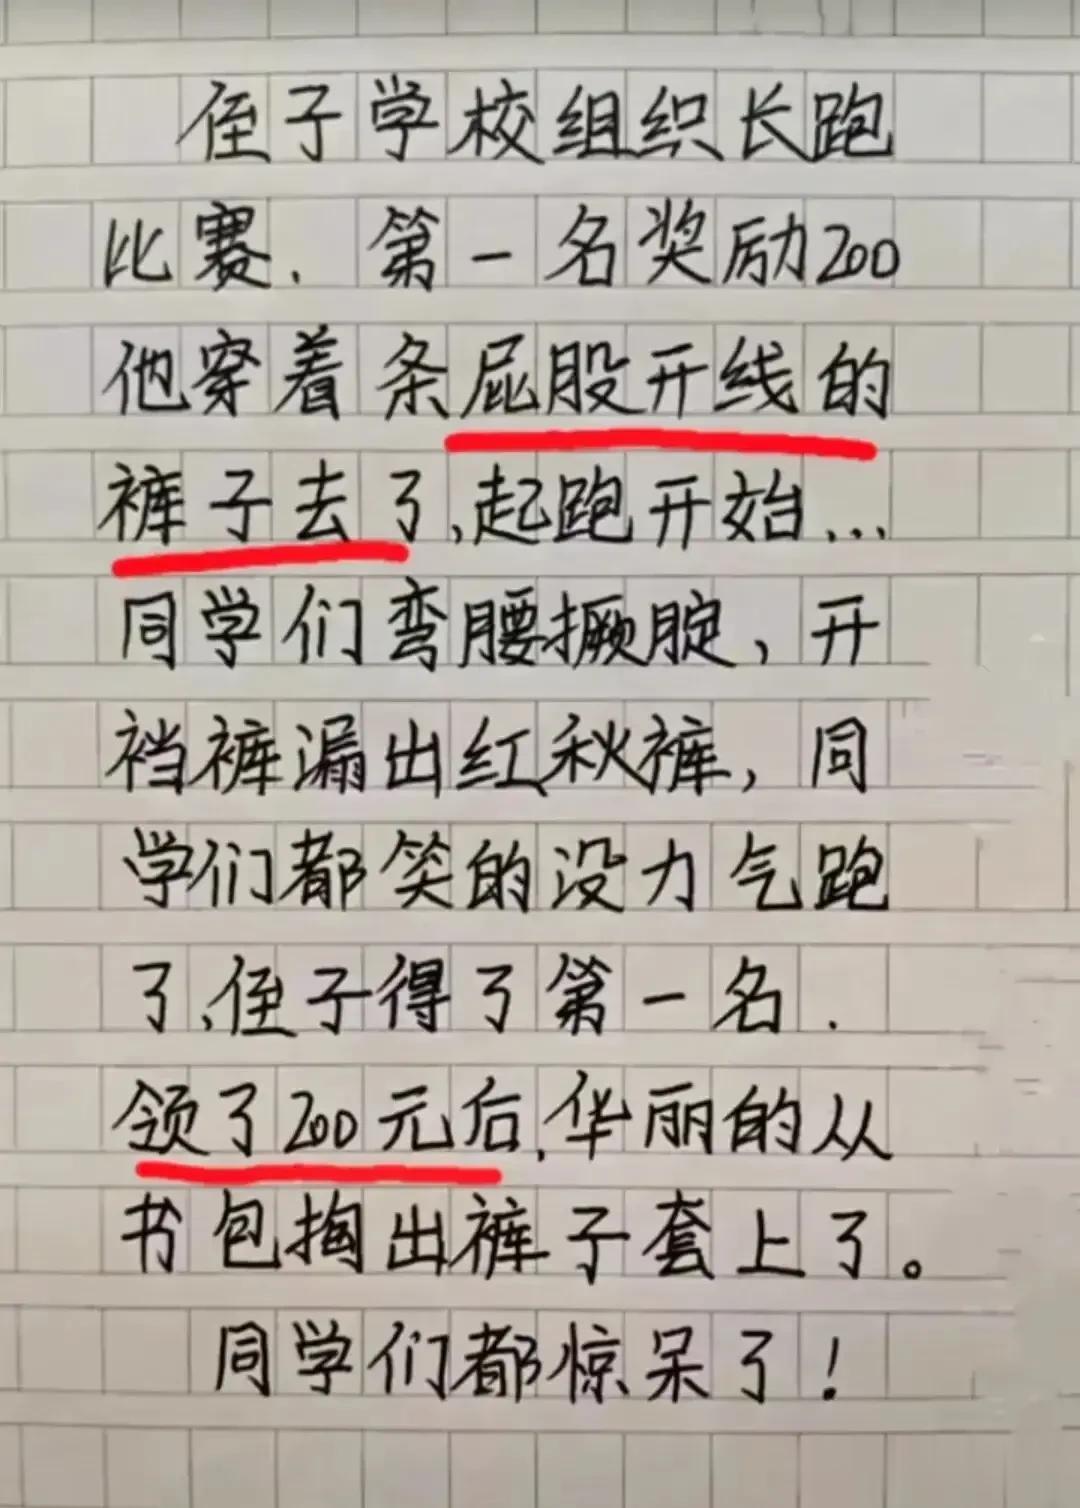 侄子学校组织长跑
比赛.第一名奖励200
他穿着条屁股开线的
裤子去了,起跑开始...
同学们弯腰撅腚,开
裆裤漏出红秋裤,同
学们都笑的没力气跑
了,侄子得了第一名.
领了200元后,华丽的从
书包掏出裤子套上了。
同学们都惊呆了!